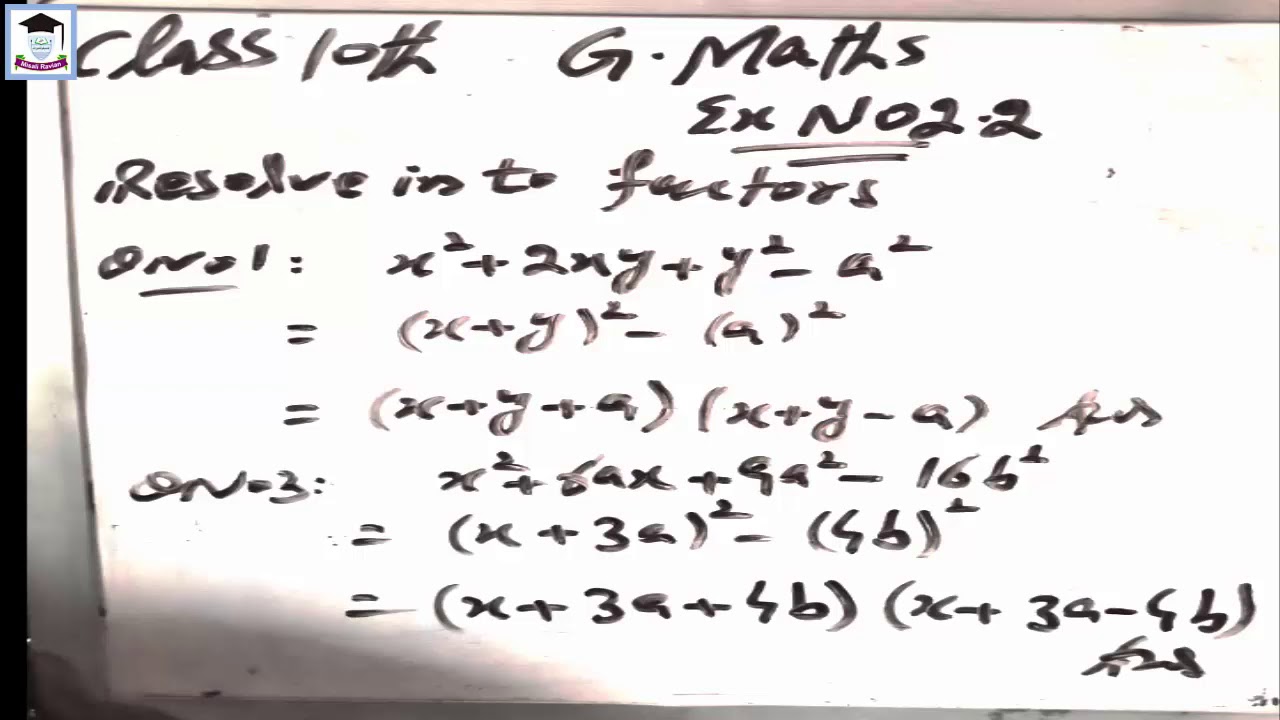 Misali Ravian
Class 10th G. Maths
Ex NO2.2
Resolve in to factors
QNo1: x² + 2xy + y² - a²
= (x+y)² - (a)²
= (x+y+a) (x+y-a) Ans
QNo3: x² + 6ax + 9a² - 16b²
= (x+3a)² - (4b)²
= (x+3a+4b) (x+3a-4b)
Ans